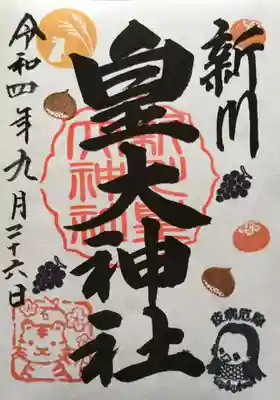 新川
皇大神社
令和四年九月二十六日
疫病厄除